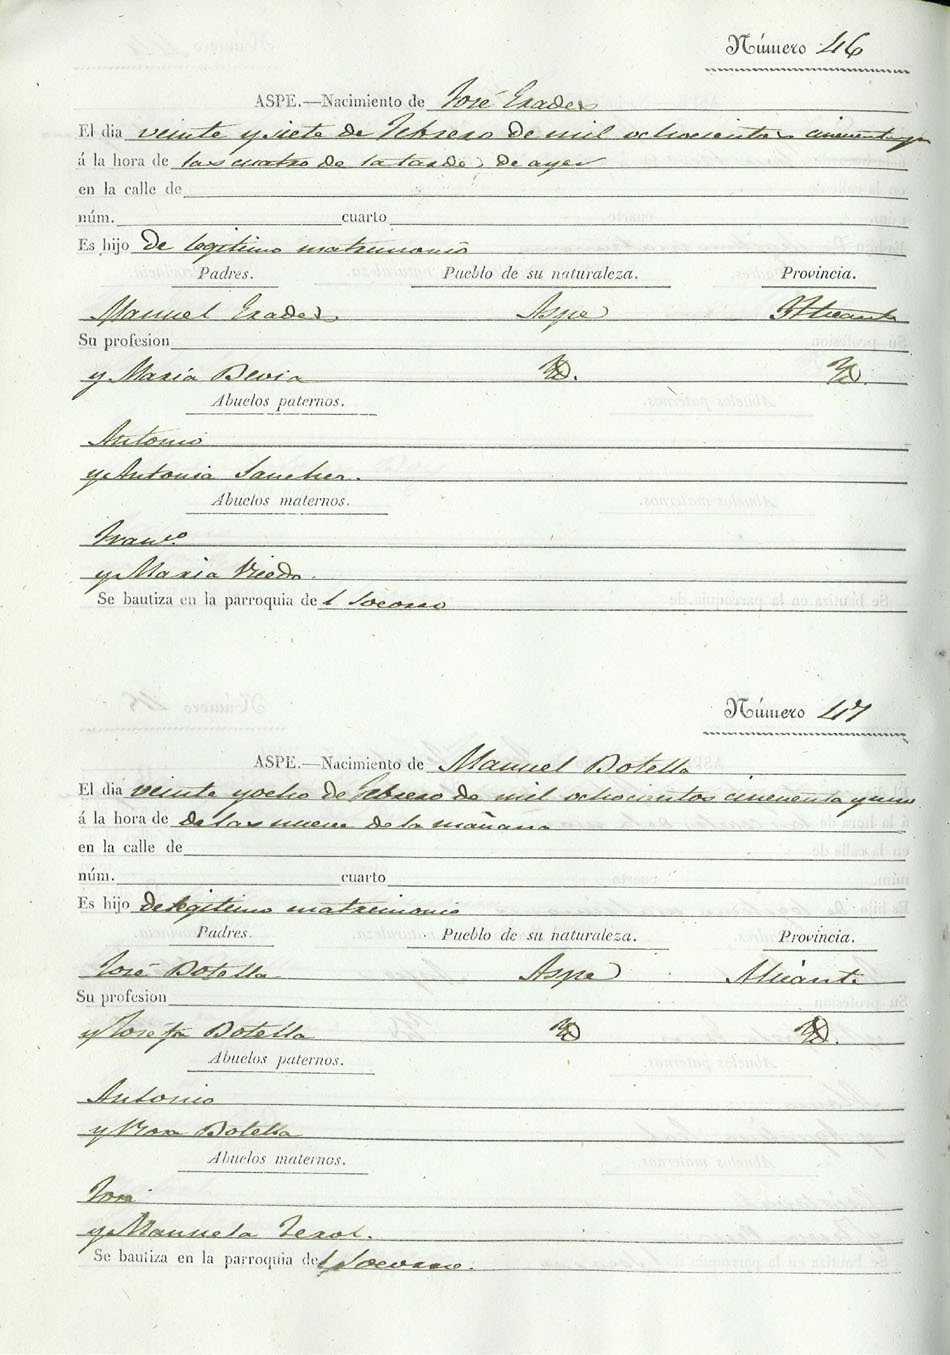 Número 46
ASPE.—Nacimiento de José Erades
El dia veinte y siete de Febrero de mil ochocientos cincuenta y un
á la hora de las cuatro de la tarde de ayer
en la calle de
núm. cuarto
Es hijo de legitimo matrimonio
Padres. Pueblo de su naturaleza. Provincia.
Manuel Erades Aspe Alicante
Su profesion
y Maria Bevia Yd. Yd.
Abuelos paternos.
Antonio
y Antonia Sanchez.
Abuelos maternos.
Franco
y Maria
Se bautiza en la parroquia del Socorro
Número 47
ASPE.—Nacimiento de Manuel Botella
El dia veinte y ocho de Febrero de mil ochocientos cincuenta y uno
á la hora de de las nueve de la mañana
en la calle de
núm. cuarto
Es hijo de legitimo matrimonio
Padres. Pueblo de su naturaleza. Provincia.
José Botella Aspe Alicante
Su profesion
y Josefa Botella Yd Yd.
Abuelos paternos.
Antonio
y Botella
Abuelos maternos.
José
y Manuela Terol.
Se bautiza en la parroquia del Socorro.